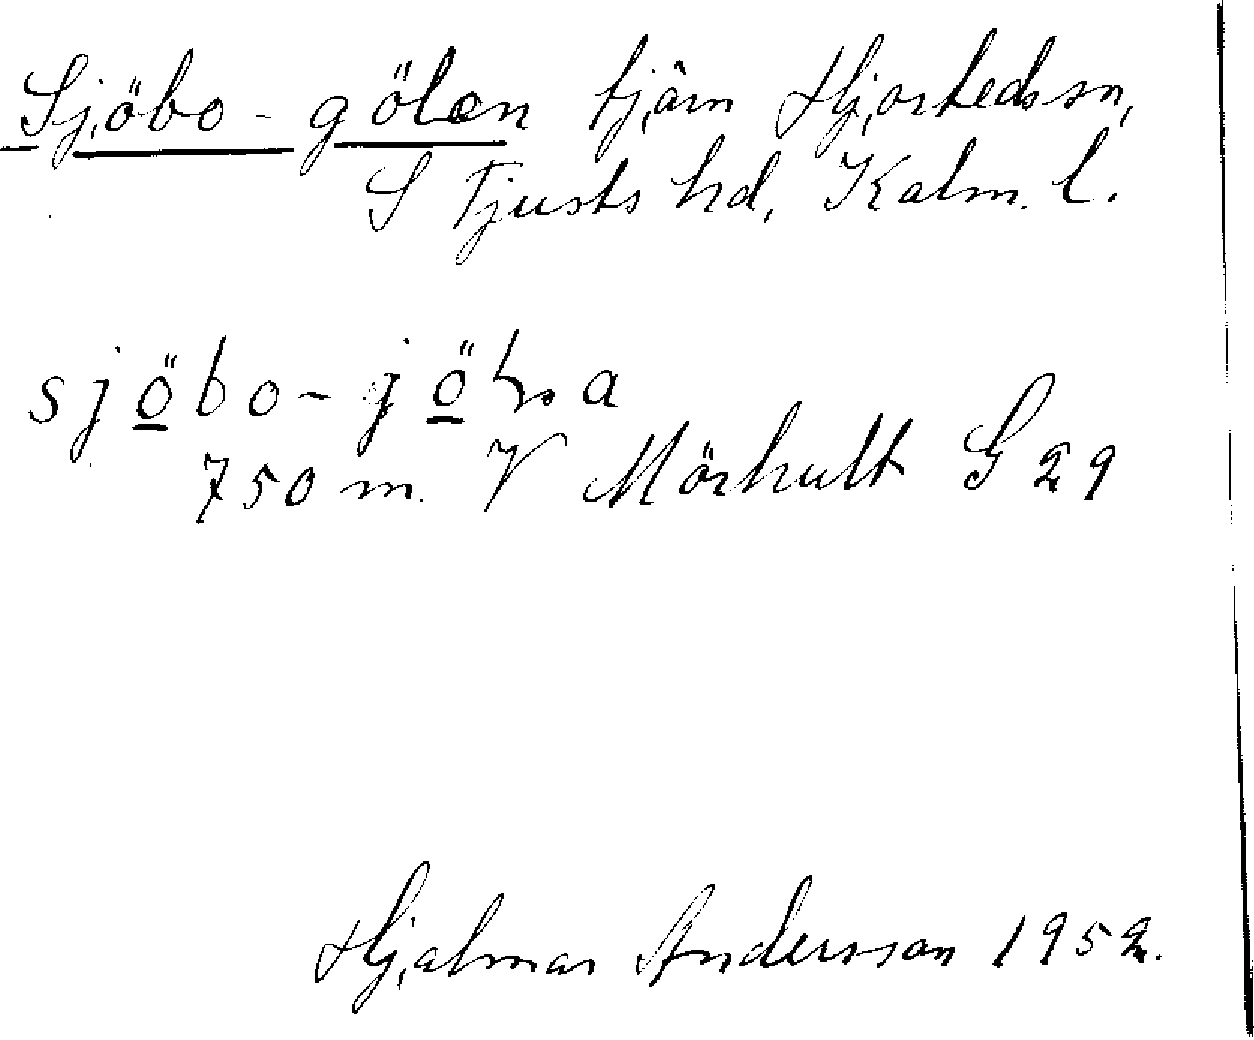 Sjöbo-gölen tjärn Hjorteds sn,
S Tjusts hd, Kalm. l.
sjöbo-jölna
750 m. V Mörhult G 29
Hjalmar Andersson 1952.